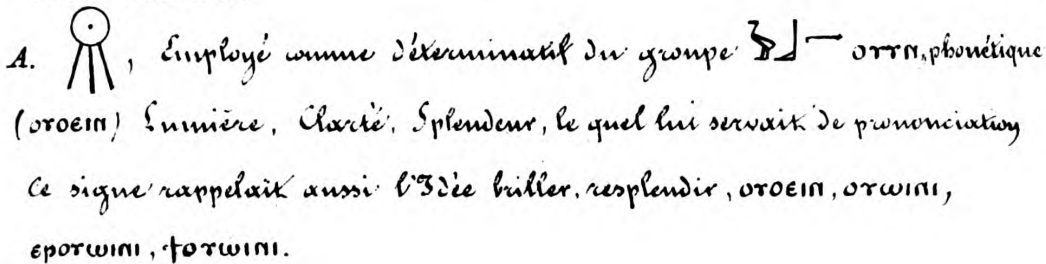 A. 𓇶, Employé comme déterminatif du groupe ⲟⲩⲩⲛ, phonétique
(ⲟⲩⲟⲉⲓⲛ) Lumière, Clarté, Splendeur, le quel lui servait de prononciation
Ce signe rappelait aussi l'Idée briller, resplendir, ⲟⲩⲟⲉⲓⲛ, ⲟⲩⲱⲓⲛⲓ,
ⲉⲣⲟⲩⲱⲓⲛⲓ, ϯⲟⲩⲱⲓⲛⲓ.